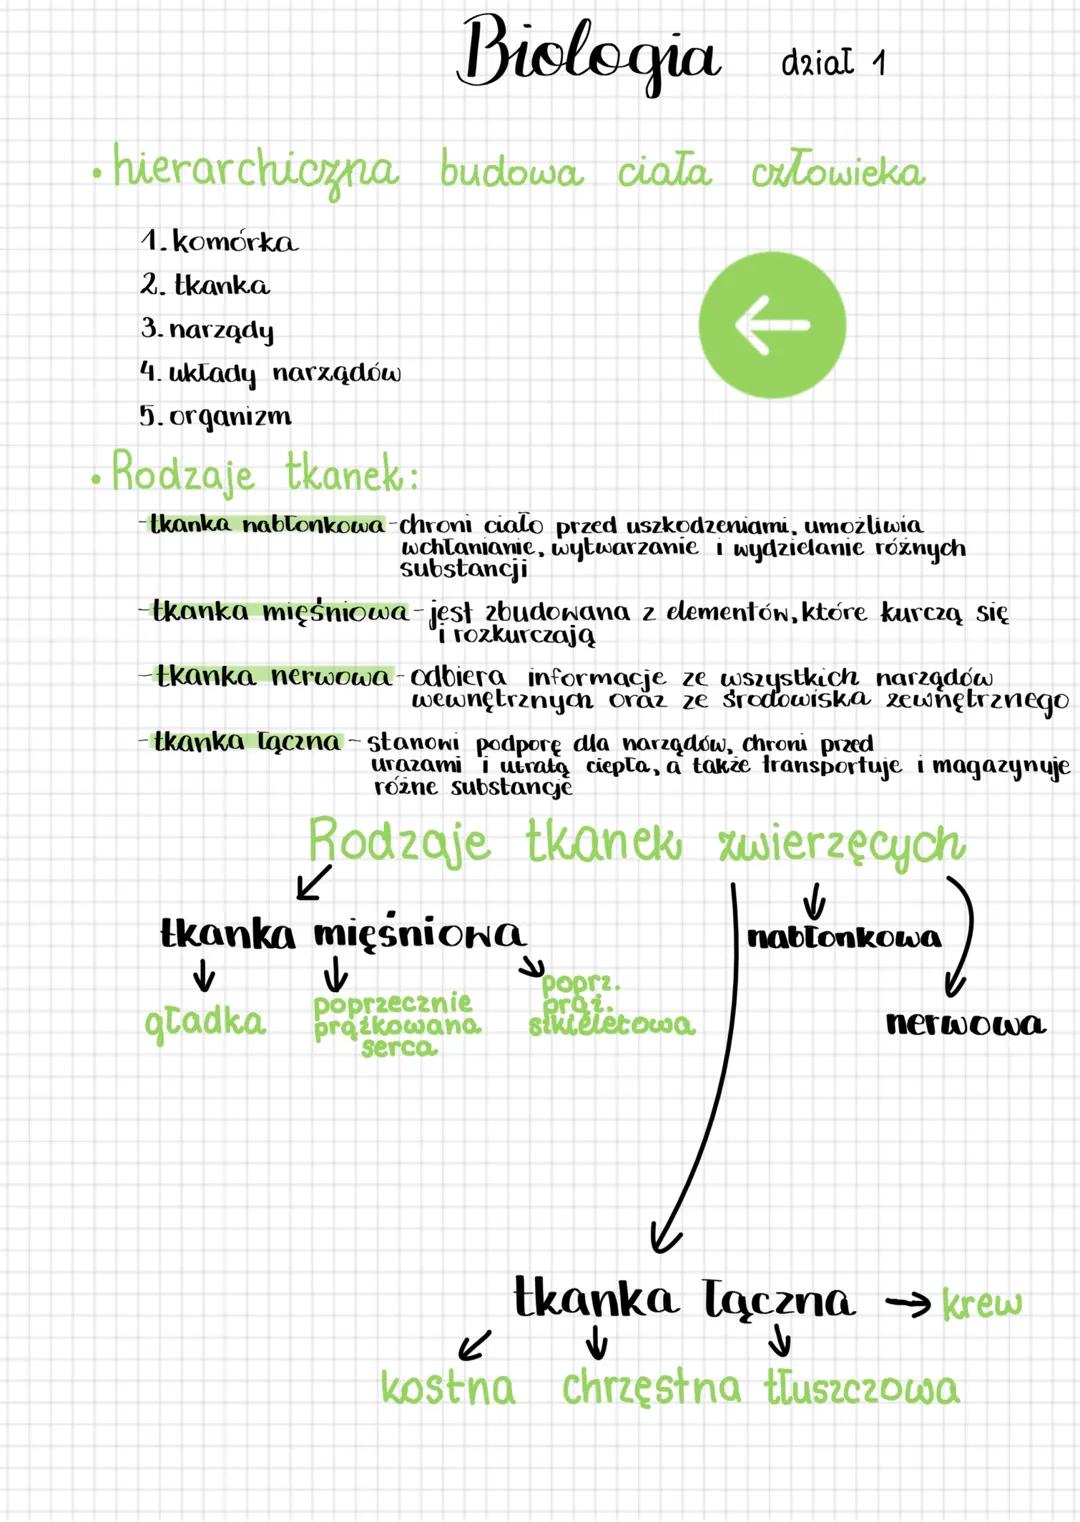 Biologia dział 1
• hierarchiczna budowa ciała człowieka
1. komórka
2. tkanka
3. narządy
4. układy narządów
5. organizm
• Rodzaje tkanek:
- tkanka nabłonkowa - chroni ciało przed uszkodzeniami, umożliwia
wchłanianie, wytwarzanie i wydzielanie różnych
substancji
- tkanka mięśniowa - jest zbudowana z elementów, które kurczą się
i rozkurczają
- tkanka nerwowa - odbiera informacje ze wszystkich narządów
wewnętrznych oraz ze środowiska zewnętrznego
- tkanka łączna - stanowi podporę dla narządów, chroni przed
urazami i utratą ciepła, a także transportuje i magazynuje
różne substancje
Rodzaje tkanek zwierzęcych
tkanka mięśniowa
nabłonkowa
gładka
poprzecznie
prążkowana
serca
poprz.
prąż.
szkieletowa
nerwowa
tkanka łączna → krew
kostna chrzęstna tłuszczowa